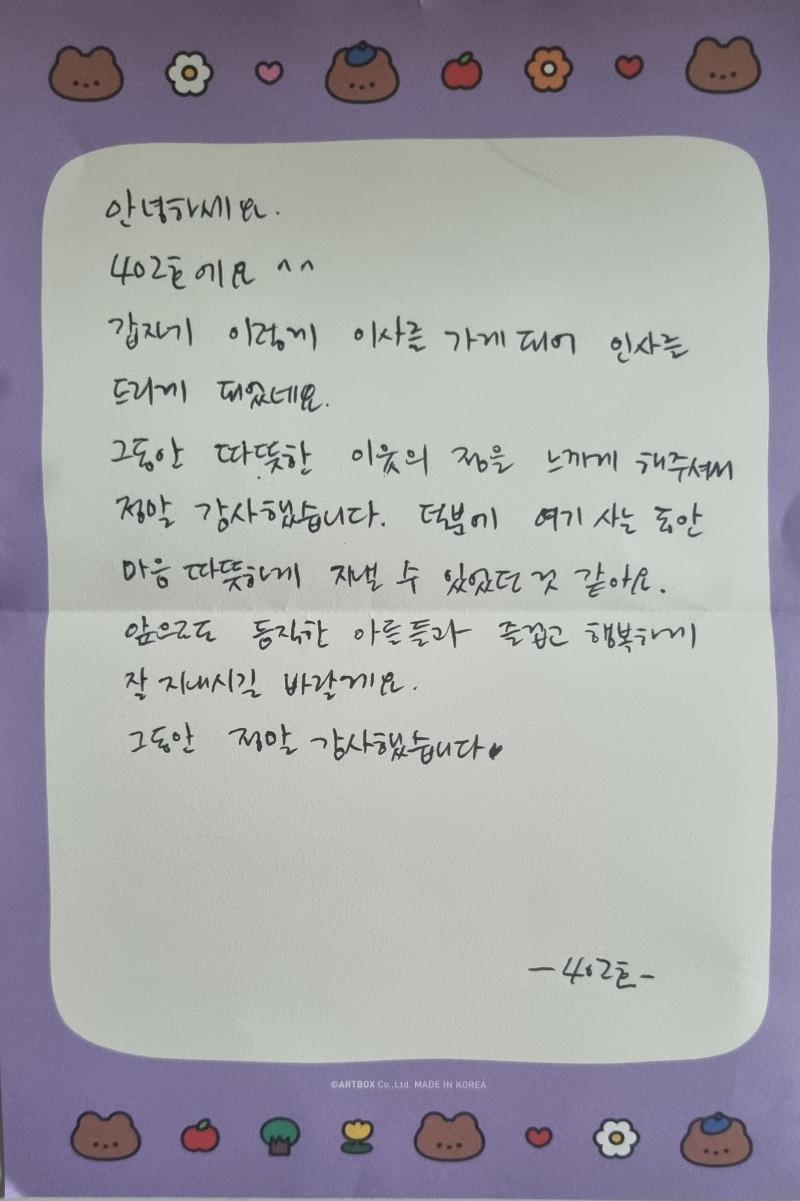 안녕하세요.
402호에요 ^^
갑자기 이렇게 이사를 가게 되어 인사를
드리게 되었네요.
그동안 따뜻한 이웃의 정을 느끼게 해주셔서
정말 감사했습니다. 덕분에 여기 사는 동안
마음 따뜻하게 지낼 수 있었던 것 같아요.
앞으로도 듬직한 아들들과 즐겁고 행복하게
잘 지내시길 바랄게요.
그동안 정말 감사했습니다♥
-402호-
©ARTBOX Co.,Ltd. MADE IN KOREA